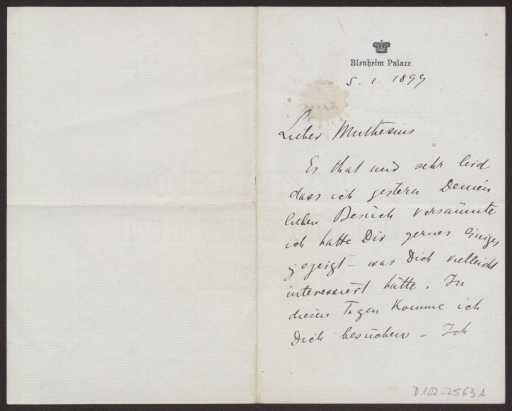 Blenheim Palace
5. 1. 1899
Lieber Muthesius
Es that mir sehr leid
dass ich gestern Deinen
lieben Besuch versäumte
ich hätte Dir gerne Einiges
gezeigt - was Dich vielleicht
interessiert hätte. In
diesen Tagen komme ich
Dich besuchen - Ich
D 102-2563 A